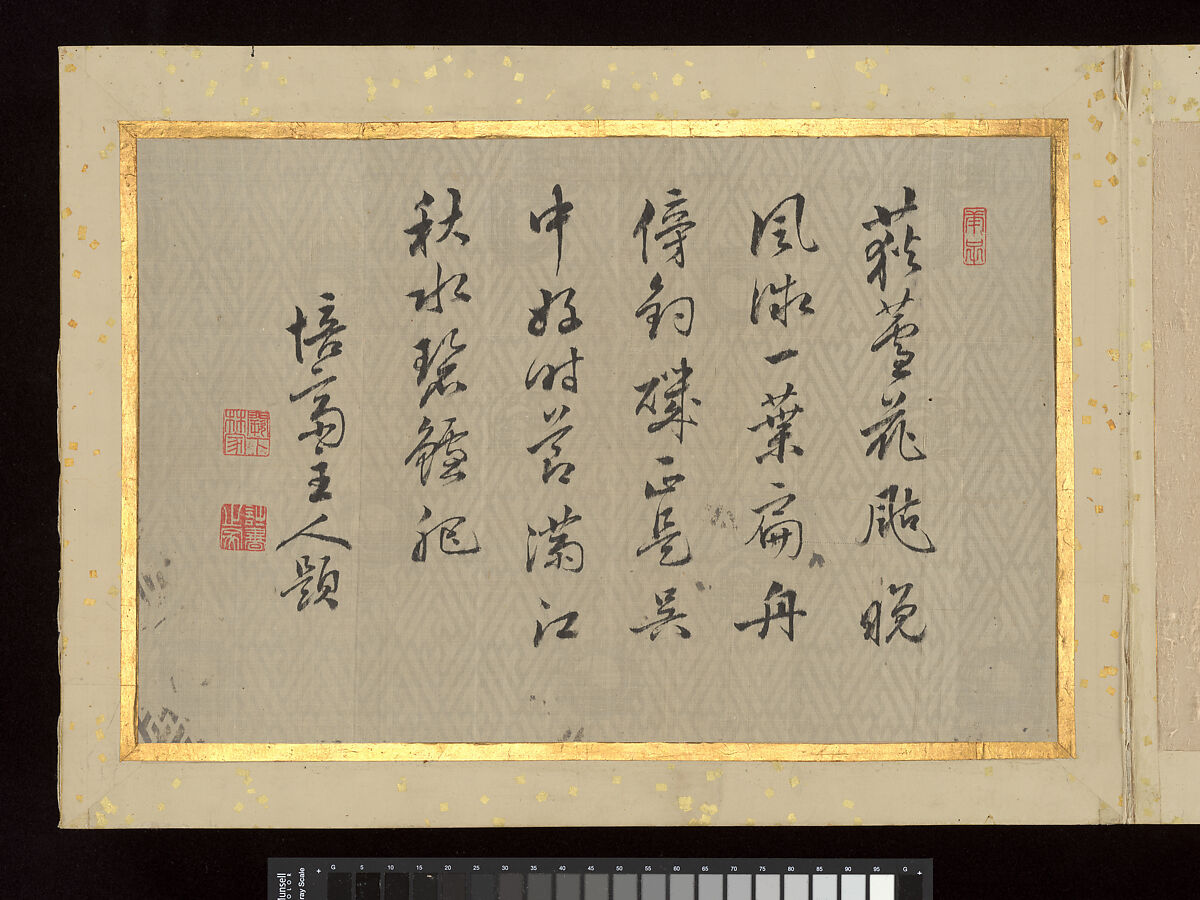 荻蘆花颭晚
風微一葉扁舟
傍釣磯正是吳
中好时節滿江
秋水碧鱸肥
培齋主人題
unsell
OLOR
ray Scale
G 5 10 15 20 25 30 35 40 45 50 55 60 65 70 75 80 85 90 95 G